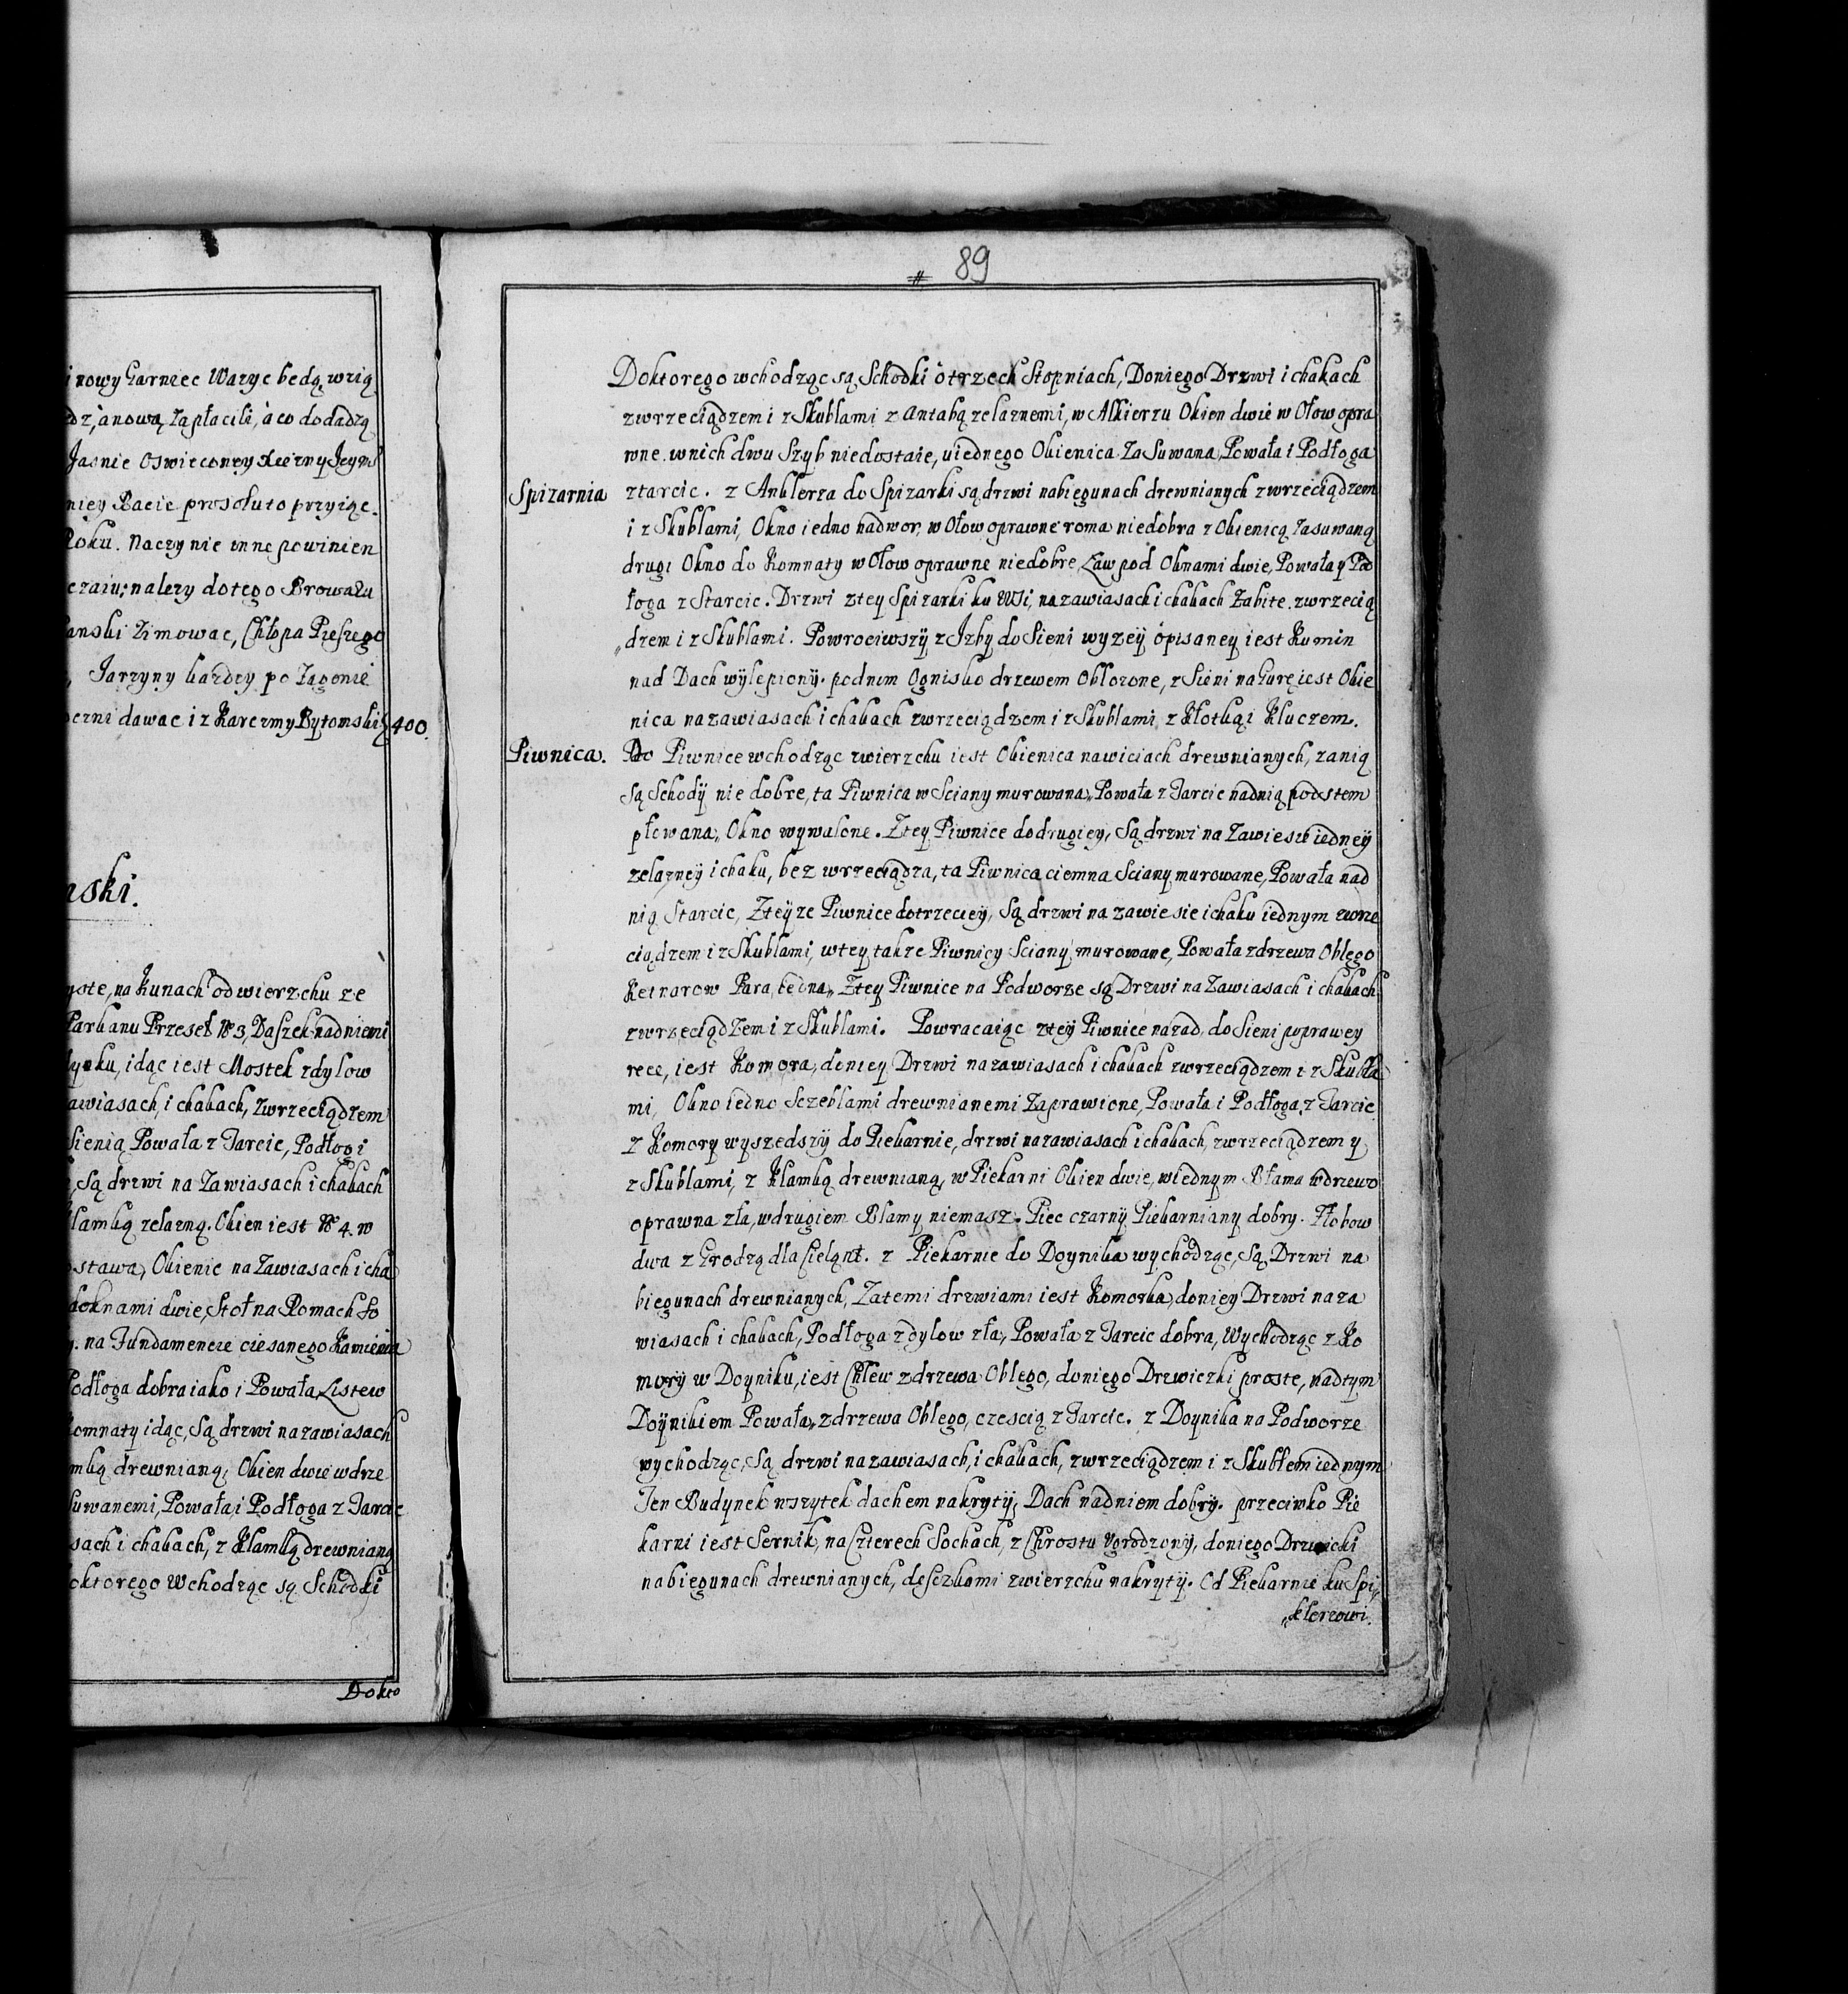 i nowy Garniec Warzyc będą, wzią
dz, a nową, zapłacili, a co dodadzą
Jasnie Oswieconey Xiezny Jeyms
niey Racie prosoluto przyiąc.
Roku. Naczynie inne powinien
czaiu; nalezy do tego Browaru
anski zimowac, Chłopa Pieszego
, Jarzyny kazdey po Zagonie
czni dawac i z Karczmy Bytomskiy 400.
nski.
yste, na Kunach od wierzchu ze
Parkanu Przeseł No 3, Daszek nadniemi
ynku, idąc iest Mostek zdylow
awiasach, i chakach, zwrzeciądzem
Sienią Powała z Tarcic, Podłogi
, Są drzwi na Zawiasach i chakach
klamką zelazną. Okien iest No 4. w
ostawa, Okienic na Zawiasach i cha
doknami dwie, Stoł na Romach So
. na Fundamencie ciesanego Kamienia
Podłoga dobra iako i Powała, Listew
omnaty idąc, Są drzwi nazawiasach
mką drewnianą, Okien dwie wdrze
suwanemi, Powała, i Podłoga z Tarcic
sach i chakach, z Klamką drewnianą
oktorego Wchodząc są Schodki
Dokto
89
Doktorego wchodząc są Schodki o trzech Stopniach, Doniego Drzwi i chakach
zwrzeciądzem i z Skublami z Antabą zelaznemi, w Alkierzu Okien dwie w Ołow opra
wne. wnich dwu Szyb niedostaie, uiednego Okienica Zasuwana, Powała i Podłoga
Spizarnia ztarcic. z Anklerza do Spizarki są drzwi nabiegunach drewnianych zwrzeciądzem
i z Skublami, Okno iedno nadwor, w Ołow oprawne roma niedobra z Okienicą zasuwaną
drugi Okno do Komnaty w Ołow oprawne niedobre, Ław pod Oknami dwie, Powała y Pod
łoga z Starcic. Drzwi ztey Spizarki ku Wsi, nazawiasach i chakach Zabite. zwrzecią
dzem i z Skublami. Powrociwszÿ z Jzby do Sieni wyzeÿ opisaney iest Kumin
nad Dach wÿlepionÿ. podnim Ognisko drzewem Obłozone, z Sieni na Gurę iest Okie
nica nazawiasach i chakach zwrzeciądzem i z Skublami, z Kłotką i Kluczem.
Piwnica. Do Piwnice wchodząc zwierzchu iest Okienica nawiciach drewnianych, zanią
są Schodÿ nie dobre, ta Piwnica w Sciany murowana, Powała z Tarcic nadnią podstem
płowana, Okno wywalone. Ztey Piwnice dodrugiey, Są drzwi na Zawiesie iedneÿ
zelazneÿ i chaku, bez wrzeciądza, ta Piwnica ciemna Sciany murowane, Powała nad
nią Starcic, Zteÿze Piwnice dotrzecieÿ, Są drzwi na zawiesie i chaku iednym zwrze
ciądzem i z Skublami, wtey takze Piwnicy Sciany murowane, Powała zdrzewa Oblego
Ketnarow Para iedna, Ztey Piwnice na Podworze są Drzwi na Zawiasach i chakach
zwrzeciądzem i z Skublami. Powracaiąc zteÿ Piwnice nazad do Sieni poprawey
ręce, iest Komora, doniey Drzwi nazawiasach i chakach zwrzeciądzem i z Skubla
mi, Okno iedno Sczeblami drewnianemi Zaprawione, Powała i Podłoga z Tarcic.
Z Komory wyszedszÿ do Piekarnie, drzwi nazawiasach i chakach, zwrzeciądzem y
z Skublami, z Klamką drewnianą, w Piekarni Okien dwie, wiednym Błama wdrzewo
oprawna zła, wdrugiem Blamy niemasz. Piec czarnÿ Piekarniany dobry. Złobow
dwa z Grodzą dla Cieląnt. z Piekarnie do Doynika wychodząc, Są Drzwi na
biegunach drewnianych, Zatemi drzwiami iest Komorka, doniey Drzwi naza
wiasach i chakach, Podłoga zdylow zła, Powała z Tarcic dobra, Wychodząc z Ko
morÿ w Doyniku, iest Chlew zdrzewa Oblego, doniego Drzwiczki proste, nadtym
Doÿnikiem Powała, zdrzewa Oblego, czescią z Tarcic. z Doynika na Podworze
wychodząc, Są drzwi nazawiasach, i chakach, zwrzeciądzem i z Skublem iednym
Ten Budynek wszytek dachem nakrytÿ, Dach nadniem dobrÿ. przeciwko Pie
karni iest Sernik, na Czterech Sochach, z Chrostu Vgrodzonÿ, doniego Drzwicki
nabiegunach drewnianych, desczkami zwierzchu nakrytÿ. Od Piekarnie ku Spi,
klerzowi.